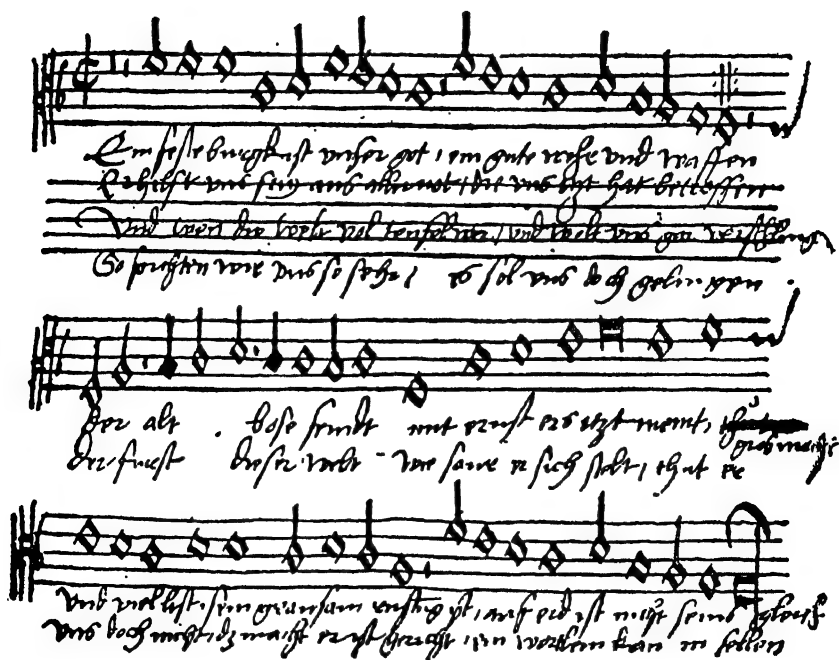 Ein feste burgk ist vnser got, ein gute wehr vnd waffen
Er hilft vns frey aus aller not, die vns hat betroffen
Vnd wen die welt vol teufel wer, vnd wolt vns gar verschlingen
So furchten wir vns so sehr, es sol vns doch gelingen
der alt bose feindt mit ernst ers itzt meint,
gros macht
der furst dieser welt wie saur er sich stelt, thut er
vnd viel list, sein grausam rustung ist, auf erd ist nicht seins gleich
vns doch nicht, dz macht er ist gericht, ein wortlein kan in fellen